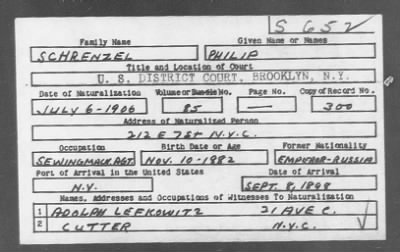 S 652
Family Name Given Name or Names
SCHRENZEL PHILIP
Title and Location of Court
U. S. DISTRICT COURT, BROOKLYN, N.Y.
Date of Naturalization Volume or Bundle No. Page No. Copy of Record No.
JULY 6-1906 85 — 300
Address of Naturalized Person
212 E 7ST N.Y.C.
Occupation Birth Date or Age Former Nationality
SEWINGMACH. AGT. NOV. 10-1882 EMPEROR-RUSSIA
Port of Arrival in the United States Date of Arrival
N.Y. SEPT. 8, 1898
Names, Addresses and Occupations of Witnesses To Naturalization
1 ADOLPH LEFKOWITZ 21 AVE C.
2 CUTTER N.Y.C.